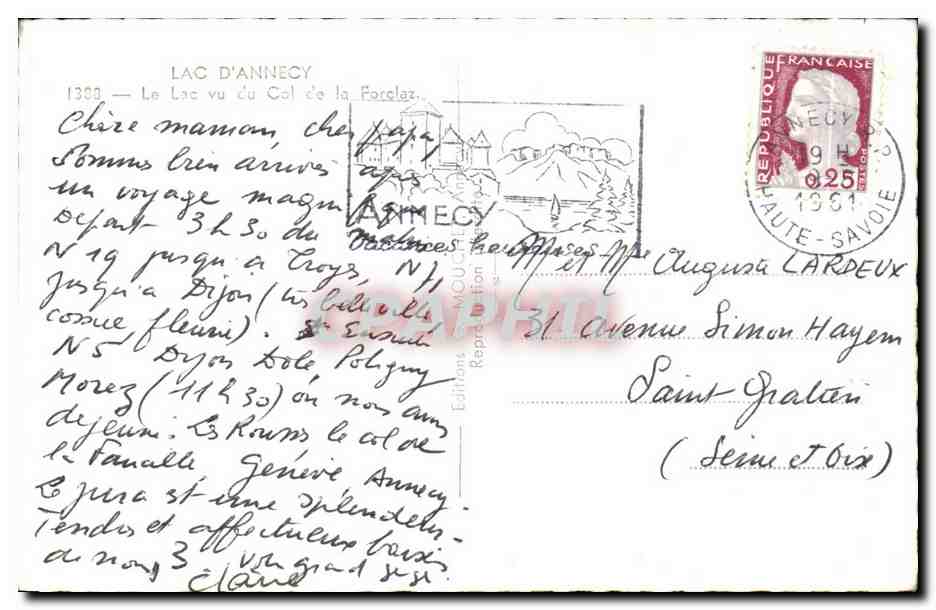 LAC D'ANNECY
1380 — Le Lac vu du Col de la Forclaz.
Chère maman, cher papa,
Sommes bien arrivés après
un voyage magnifique
Départ 3 h 30 du matin
N 19 jusqu'à Troyes, N 71
jusqu'à Dijon (très belle ville
cossue, fleurie). Ensuite
N 5 Dijon Dole, Poligny
Morez (11 h 30) où nous avons
déjeuné. Les Rousses le col de
la Faucille, Genève, Annecy.
Le Jura est une splendeur.
Tendres et affectueux baisers
de nous 3. Votre grand
Claire
ANNECY
Editions MOUC
Reproduction
REPUBLIQUE FRANÇAISE
0,25
POSTES
ANNECY R.P.
9 H
1961
HAUTE-SAVOIE
M et Mme Augusta LARDEUX
31 Avenue Simon Hayem
Saint Gratien
(Seine et Oise)
CPAPHIL